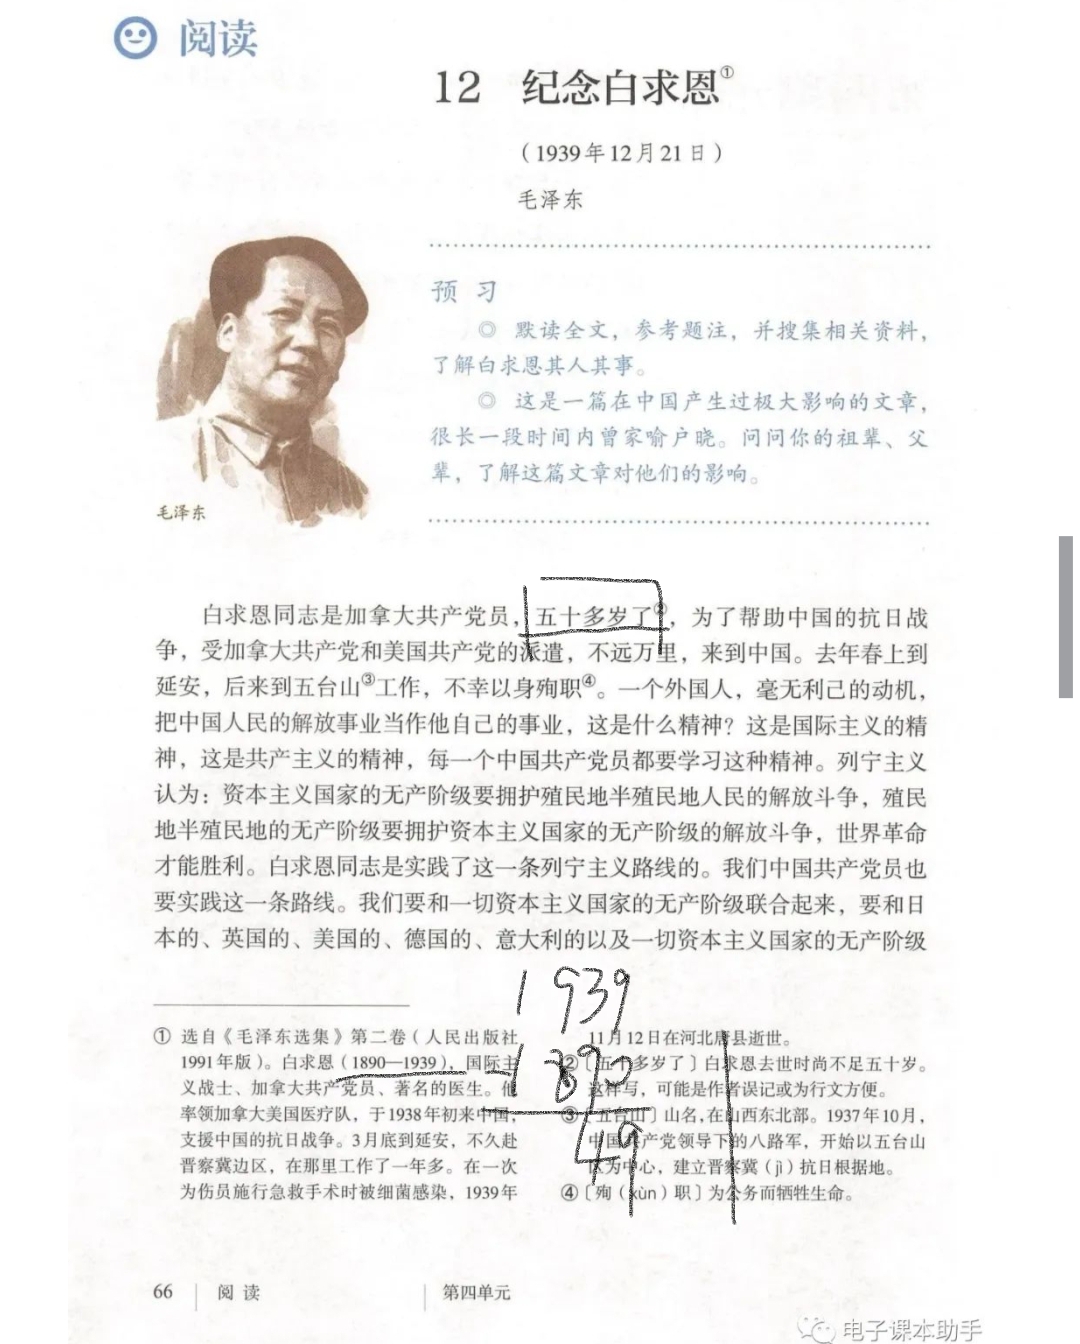 阅读
12 纪念白求恩①
（1939年12月21日）
毛泽东
预 习
◎ 默读全文，参考题注，并搜集相关资料，
了解白求恩其人其事。
◎ 这是一篇在中国产生过极大影响的文章，
很长一段时间内曾家喻户晓。问问你的祖辈、父
辈，了解这篇文章对他们的影响。
毛泽东
白求恩同志是加拿大共产党员，五十多岁了②，为了帮助中国的抗日战
争，受加拿大共产党和美国共产党的派遣，不远万里，来到中国。去年春上到
延安，后来到五台山③工作，不幸以身殉职④。一个外国人，毫无利己的动机，
把中国人民的解放事业当作他自己的事业，这是什么精神？这是国际主义的精
神，这是共产主义的精神，每一个中国共产党员都要学习这种精神。列宁主义
认为：资本主义国家的无产阶级要拥护殖民地半殖民地人民的解放斗争，殖民
地半殖民地的无产阶级要拥护资本主义国家的无产阶级的解放斗争，世界革命
才能胜利。白求恩同志是实践了这一条列宁主义路线的。我们中国共产党员也
要实践这一条路线。我们要和一切资本主义国家的无产阶级联合起来，要和日
本的、英国的、美国的、德国的、意大利的以及一切资本主义国家的无产阶级
1939
1890
49
① 选自《毛泽东选集》第二卷（人民出版社
1991年版）。白求恩（1890—1939），国际主
义战士、加拿大共产党员、著名的医生。他
率领加拿大美国医疗队，于1938年初来中国，
支援中国的抗日战争。3月底到延安，不久赴
晋察冀边区，在那里工作了一年多。在一次
为伤员施行急救手术时被细菌感染，1939年
11月12日在河北唐县逝世。
②〔五十多岁了〕白求恩去世时尚不足五十岁。
这样写，可能是作者误记或为行文方便。
③〔五台山〕山名，在山西东北部。1937年10月，
中国共产党领导下的八路军，开始以五台山
区为中心，建立晋察冀（jì）抗日根据地。
④〔殉（xùn）职〕为公务而牺牲生命。
66 阅 读 第四单元
电子课本助手